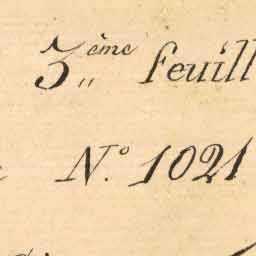 3ème feuill
N.° 1021